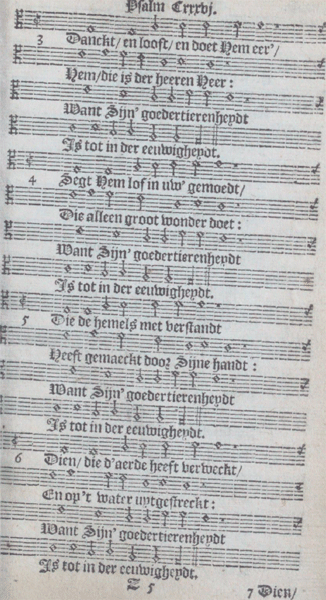 Psalm Cxxxvj.
3 Danckt/ en looft/ en doet Hem eer'/
Hem/ die is der heeren Heer:
Want Sijn' goedertierenheydt
Is tot in der eeuwigheydt.
4 Segt Hem lof in uw' gemoedt/
Die alleen groot wonder doet:
Want Sijn' goedertierenheydt
Is tot in der eeuwigheydt.
5 Die de hemels met verstandt
Heeft gemaeckt door Sijne handt:
Want Sijn' goedertierenheydt
Is tot in der eeuwigheydt.
6 Dien/ die d'aerde heeft verweckt/
En op't water uytgestreckt:
Want Sijn' goedertierenheydt
Is tot in der eeuwigheydt.
Z 5 7 Dien/